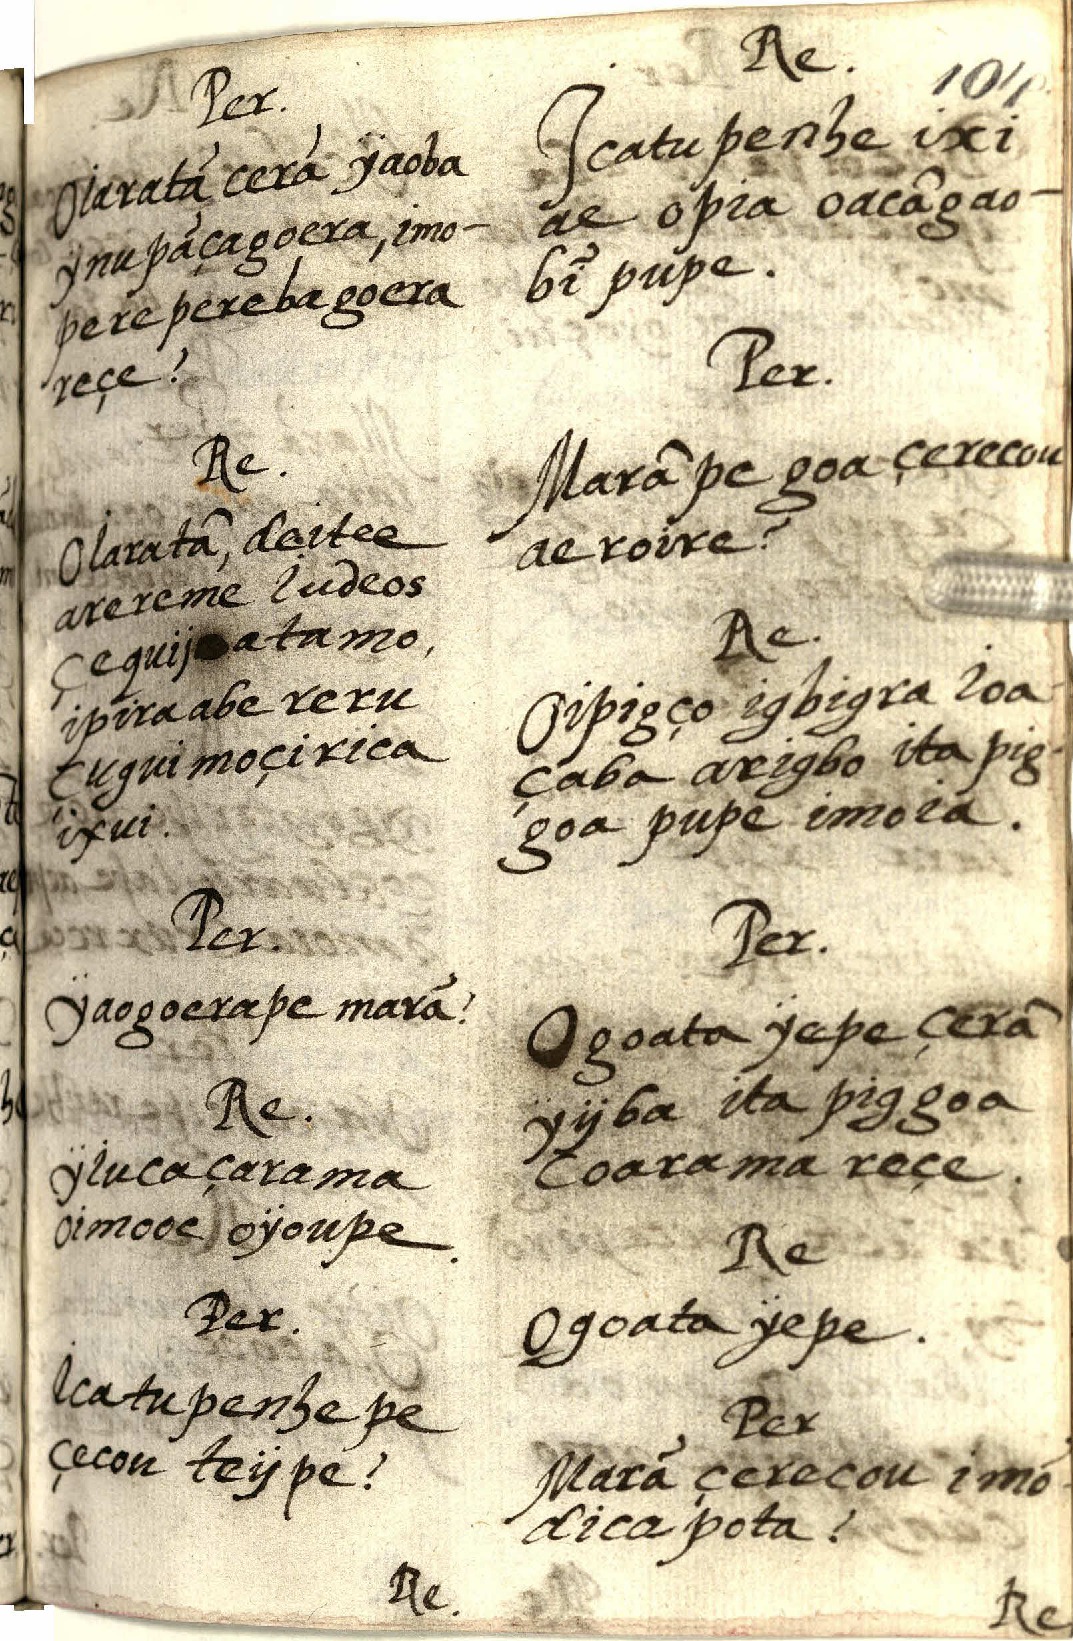 Per.
Oiaratã cerã ÿaoba
ÿnupãçagoera, imo-
perеperebagoera
reçe?
Re.
Oiaratã, deitee
arereme Iudeos
çequij atamo,
ipira abe reru
tugui moçirica
ixui.
Per.
ÿaogoerape marã?
Re.
ÿiucaçarama
oimooc oÿoupe.
Per.
Icatupenhe pe
çecou teijpe?
Re.
104
Re.
Icatupenhe ixi
ae opia oacãgao-
bĩ pupe.
Per.
Marã pe goa çerecou
ae roire?
Re.
Oipigço igbigra ioa
çaba arigbo ita pig-
goa pupe imoia.
Per.
Ogoata ÿepe çerã
ÿijba ita piggoa
çoarama reçe.
Re
Ogoata ÿepe.
Per
Marã çerecou imo-
dica pota?
Re